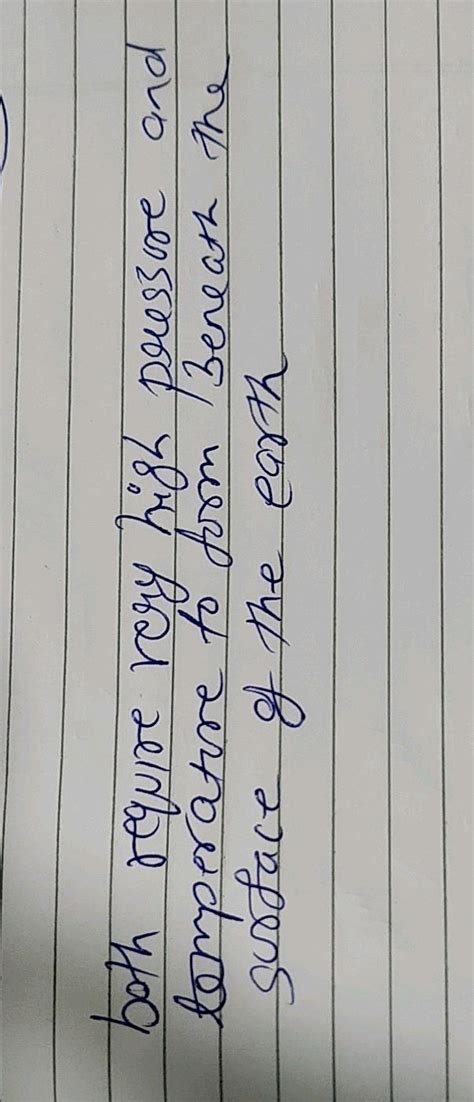 both require very high pressure and
temperature to form / Beneath the
surface of the earth